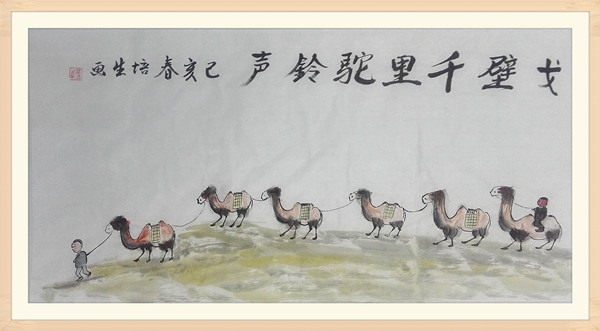 戈壁千里駝铃声 己亥春培生画